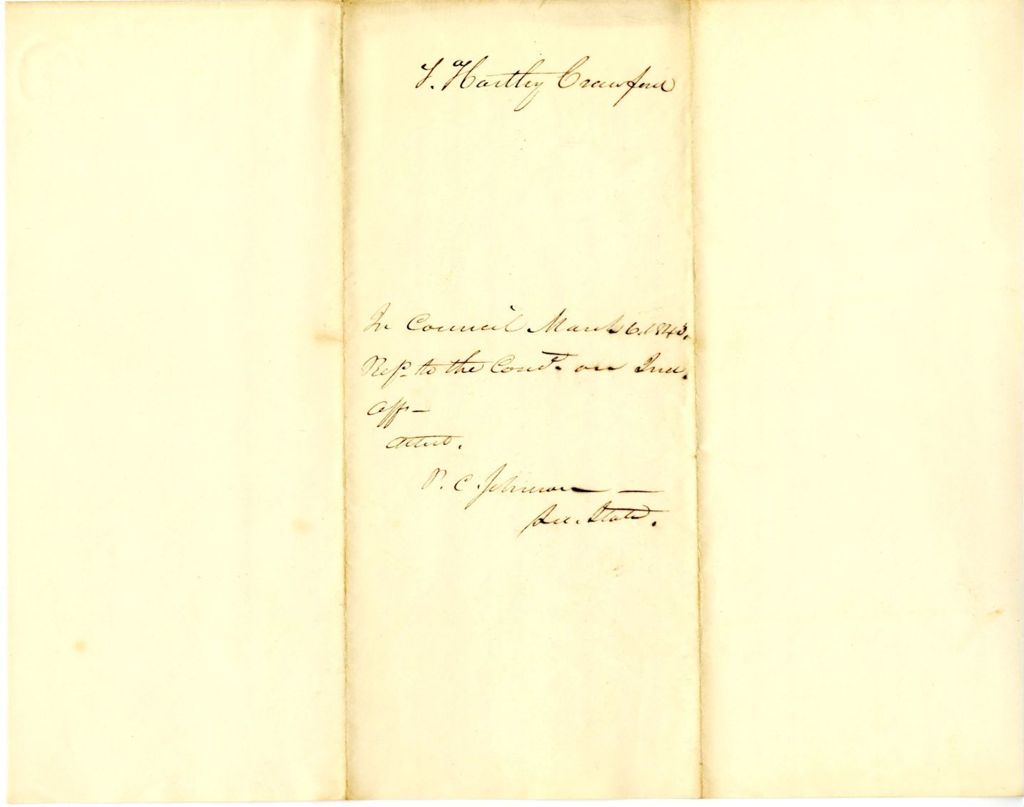 T. Hartley Crawford
In Council March 6. 1843.
Ref.d to the Com.e on Ind.
Aff—
Attest.
P. C. Johnson —
Sec. State.